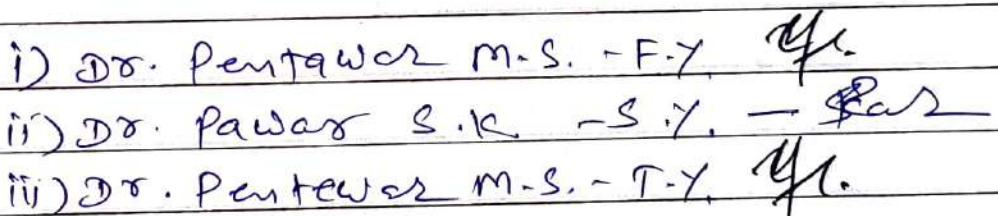 i) Dr. Pentawar M.S. - F.Y.
ii) Dr. Pawar S.K. - S.Y. -
iii) Dr. Pentewar M.S. - T.Y.